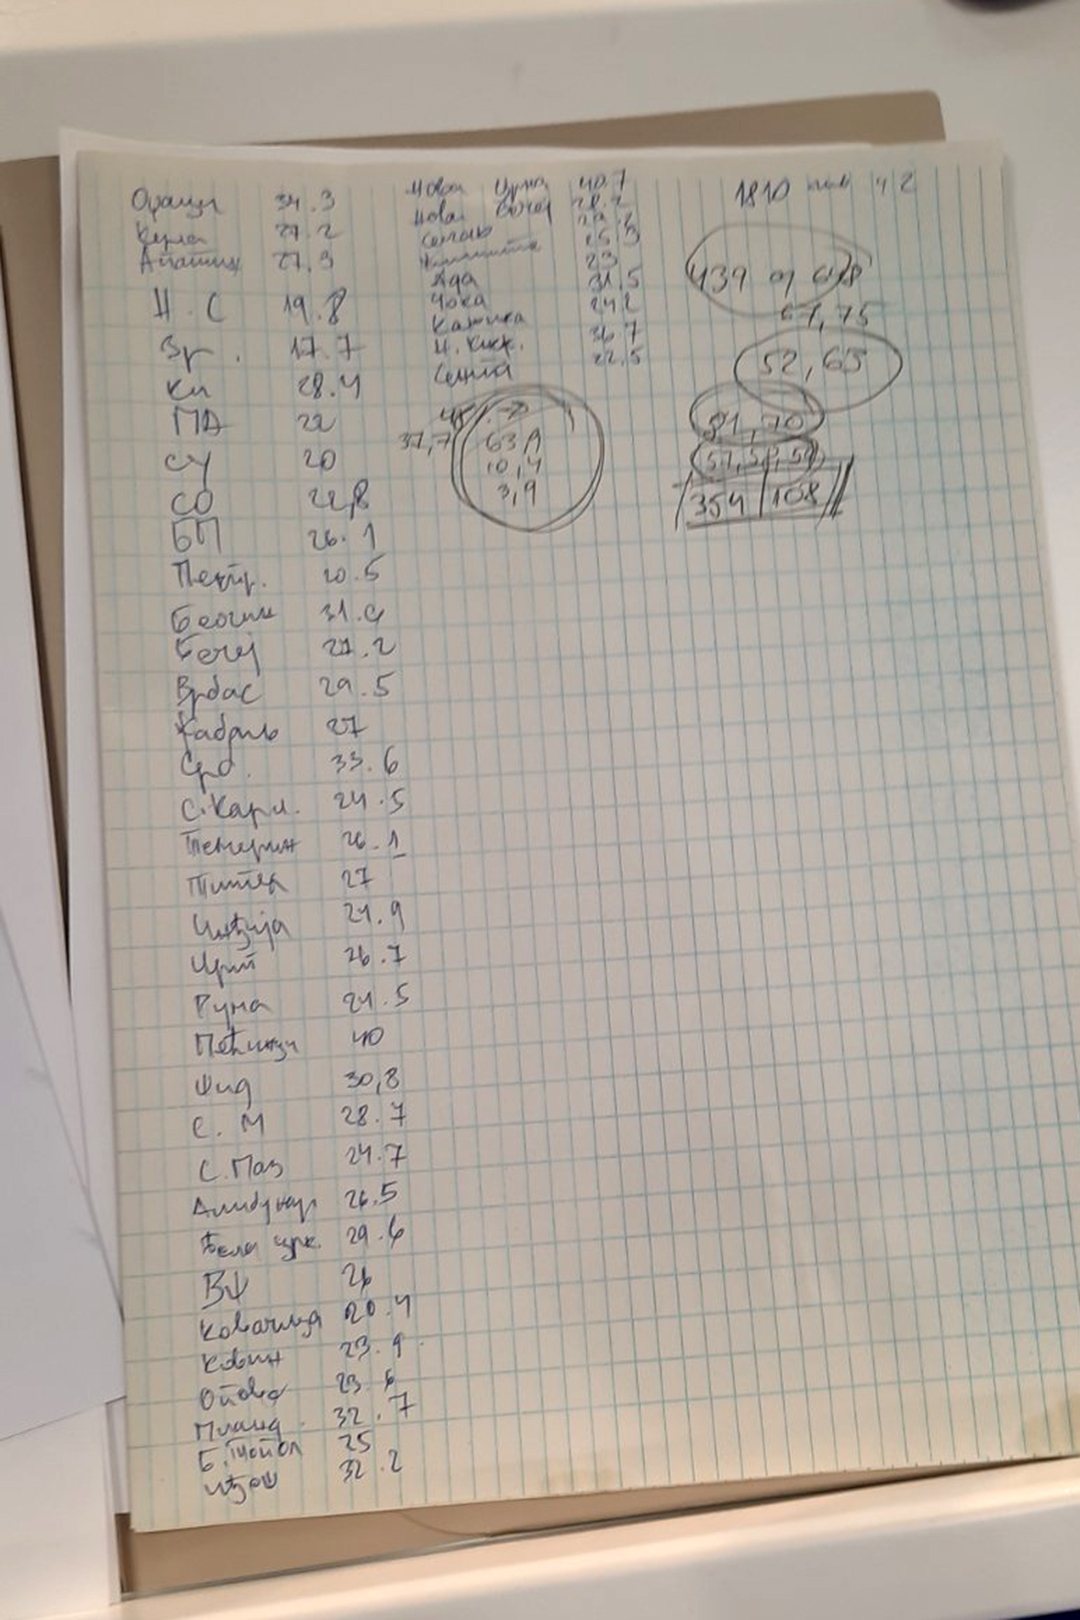 Оџаци 34.3
Кула 27.2
Апатин 27,3
Н.С 19.8
Зр. 17.7
Ки 28.4
ПА 22
СУ 20
СО 22,8
БП 26.1
Петр. 20.5
Беочин 31.9
Бечеј 27.2
Врбас 29.5
Жабаљ 27
Срб. 33.6
С.Карл. 24.5
Темерин 26.1
Тител 27
Инђија 21.9
Ириг 26.7
Рума 21.5
Пећинци 40
Шид 30,8
С. М 28.7
С.Паз 24.7
Алибунар 26.5
Бела црк. 29.6
ВШ 26
Ковачица 20.4
Ковин 23.9
Опово 23.6
Планд. 32.7
Б.Топол 25
Ићош 32.2
Нова Црња 40.7
Нови Бечеј 28.2
Сечањ
25.3
23
Ада 31.5
Чока 24.2
Кањижа 36.7
Н. Кнеж. 22.5
Сента
37,7
63,9
10,4
3,9
1810 42
439 од 648
67,75
52,65
81,70
354 | 108